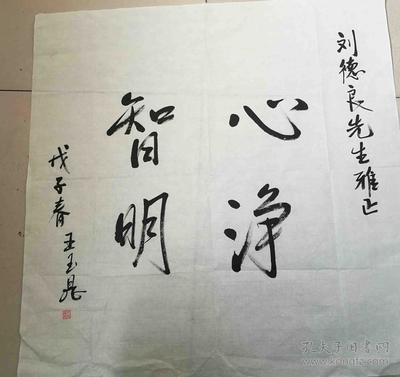 刘德良先生雅正
心净
智明
戊子春王玉
孔夫子旧书网
www.kongfz.com